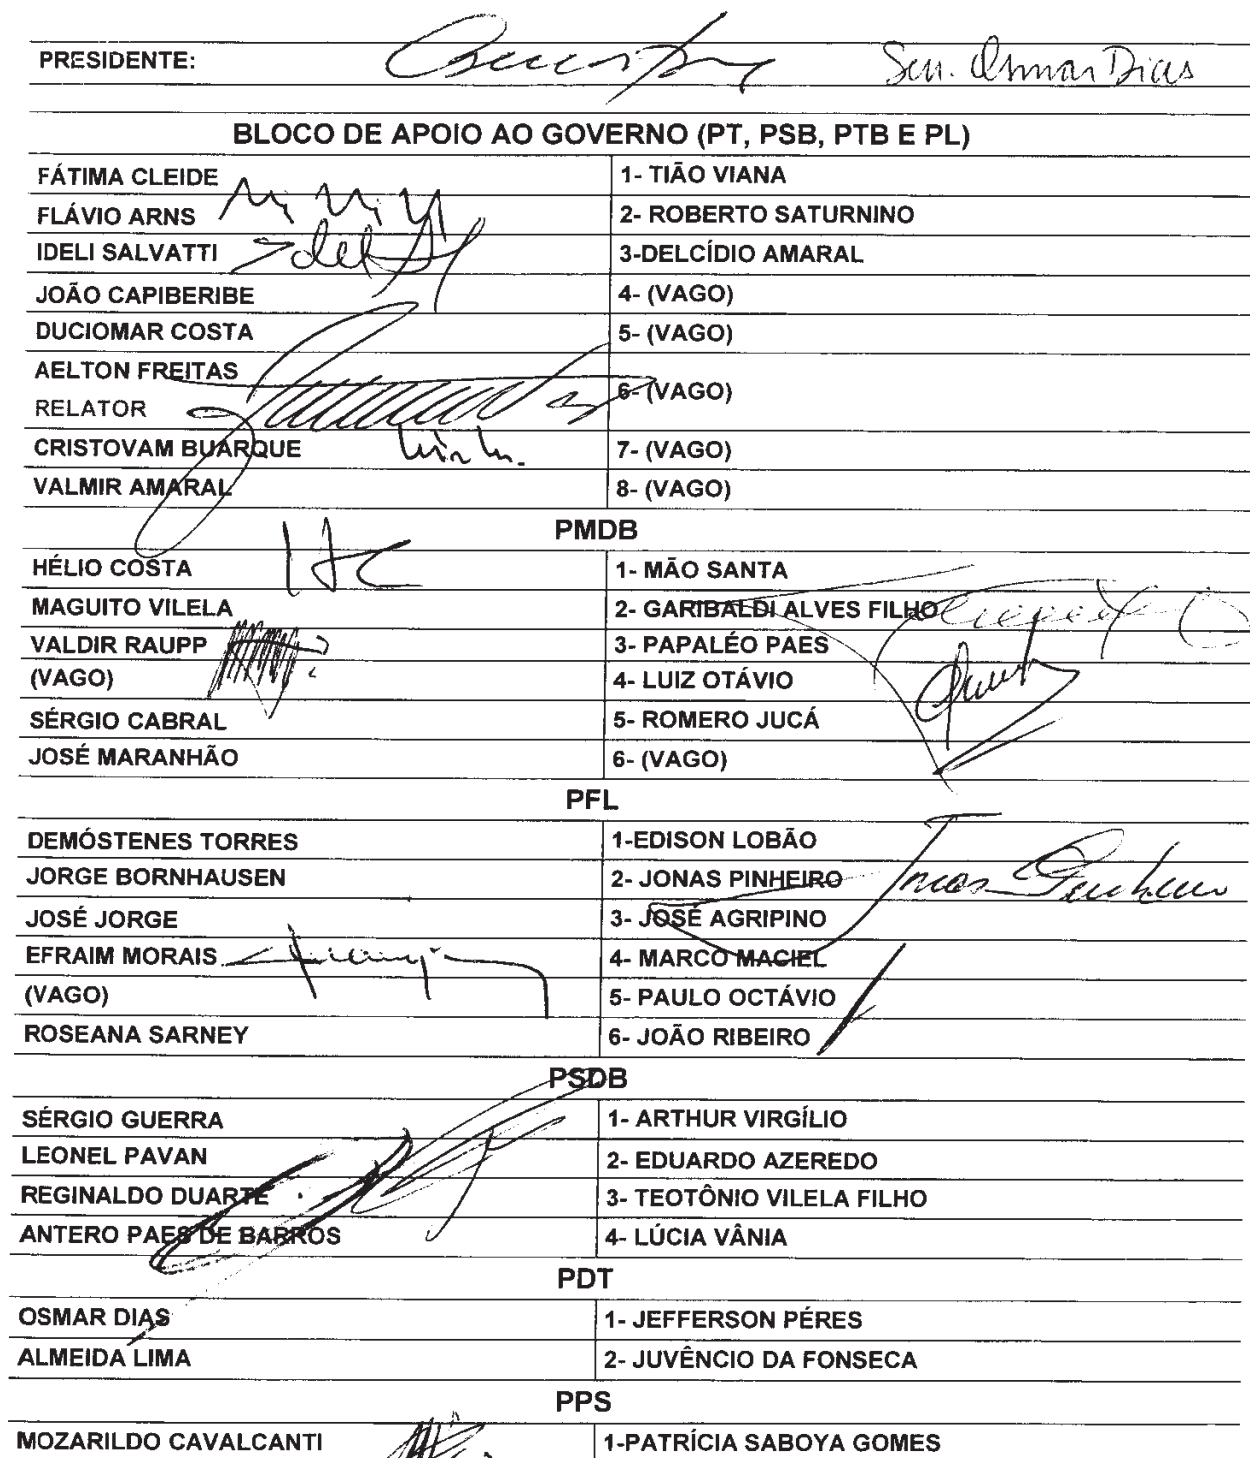 PRESIDENTE: Sen. Osmar Dias
BLOCO DE APOIO AO GOVERNO (PT, PSB, PTB E PL)
FÁTIMA CLEIDE 1- TIÃO VIANA
FLÁVIO ARNS 2- ROBERTO SATURNINO
IDELI SALVATTI Ideli 3-DELCÍDIO AMARAL
JOÃO CAPIBERIBE 4- (VAGO)
DUCIOMAR COSTA 5- (VAGO)
AELTON FREITAS
RELATOR 6- (VAGO)
CRISTOVAM BUARQUE 7- (VAGO)
VALMIR AMARAL 8- (VAGO)
PMDB
HÉLIO COSTA 1- MÃO SANTA
MAGUITO VILELA 2- GARIBALDI ALVES FILHO
VALDIR RAUPP 3- PAPALÉO PAES
(VAGO) 4- LUIZ OTÁVIO
SÉRGIO CABRAL 5- ROMERO JUCÁ
JOSÉ MARANHÃO 6- (VAGO)
PFL
DEMÓSTENES TORRES 1-EDISON LOBÃO
JORGE BORNHAUSEN 2- JONAS PINHEIRO Jonas Pinheiro
JOSÉ JORGE 3- JOSÉ AGRIPINO
EFRAIM MORAIS 4- MARCO MACIEL
(VAGO) 5- PAULO OCTÁVIO
ROSEANA SARNEY 6- JOÃO RIBEIRO
PSDB
SÉRGIO GUERRA 1- ARTHUR VIRGÍLIO
LEONEL PAVAN 2- EDUARDO AZEREDO
REGINALDO DUARTE 3- TEOTÔNIO VILELA FILHO
ANTERO PAES DE BARROS 4- LÚCIA VÂNIA
PDT
OSMAR DIAS 1- JEFFERSON PÉRES
ALMEIDA LIMA 2- JUVÊNCIO DA FONSECA
PPS
MOZARILDO CAVALCANTI 1-PATRÍCIA SABOYA GOMES